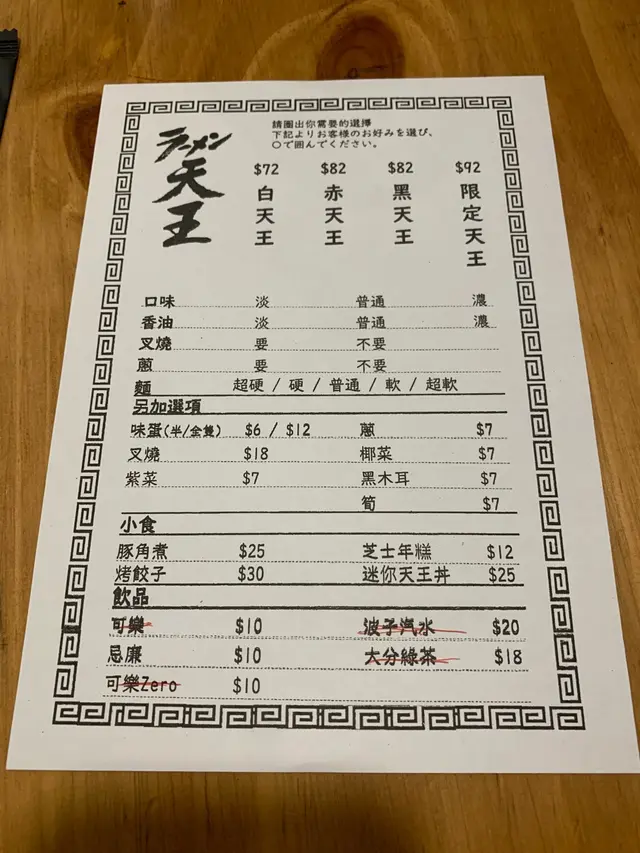 ラーメン天王
請圈出你需要的選擇
下記よりお客様のお好みを選び、
〇で囲んでください。
$72 $82 $82 $92
白天王 赤天王 黑天王 限定天王
口味 淡 普通 濃
香油 淡 普通 濃
叉燒 要 不要
蔥 要 不要
麵 超硬 / 硬 / 普通 / 軟 / 超軟
另加選項
味蛋(半/全隻) $6 / $12 蔥 $7
叉燒 $18 椰菜 $7
紫菜 $7 黑木耳 $7
筍 $7
小食
豚角煮 $25 芝士年糕 $12
烤餃子 $30 迷你天王丼 $25
飲品
可樂 $10 波子汽水 $20
忌廉 $10 大分綠茶 $18
可樂Zero $10